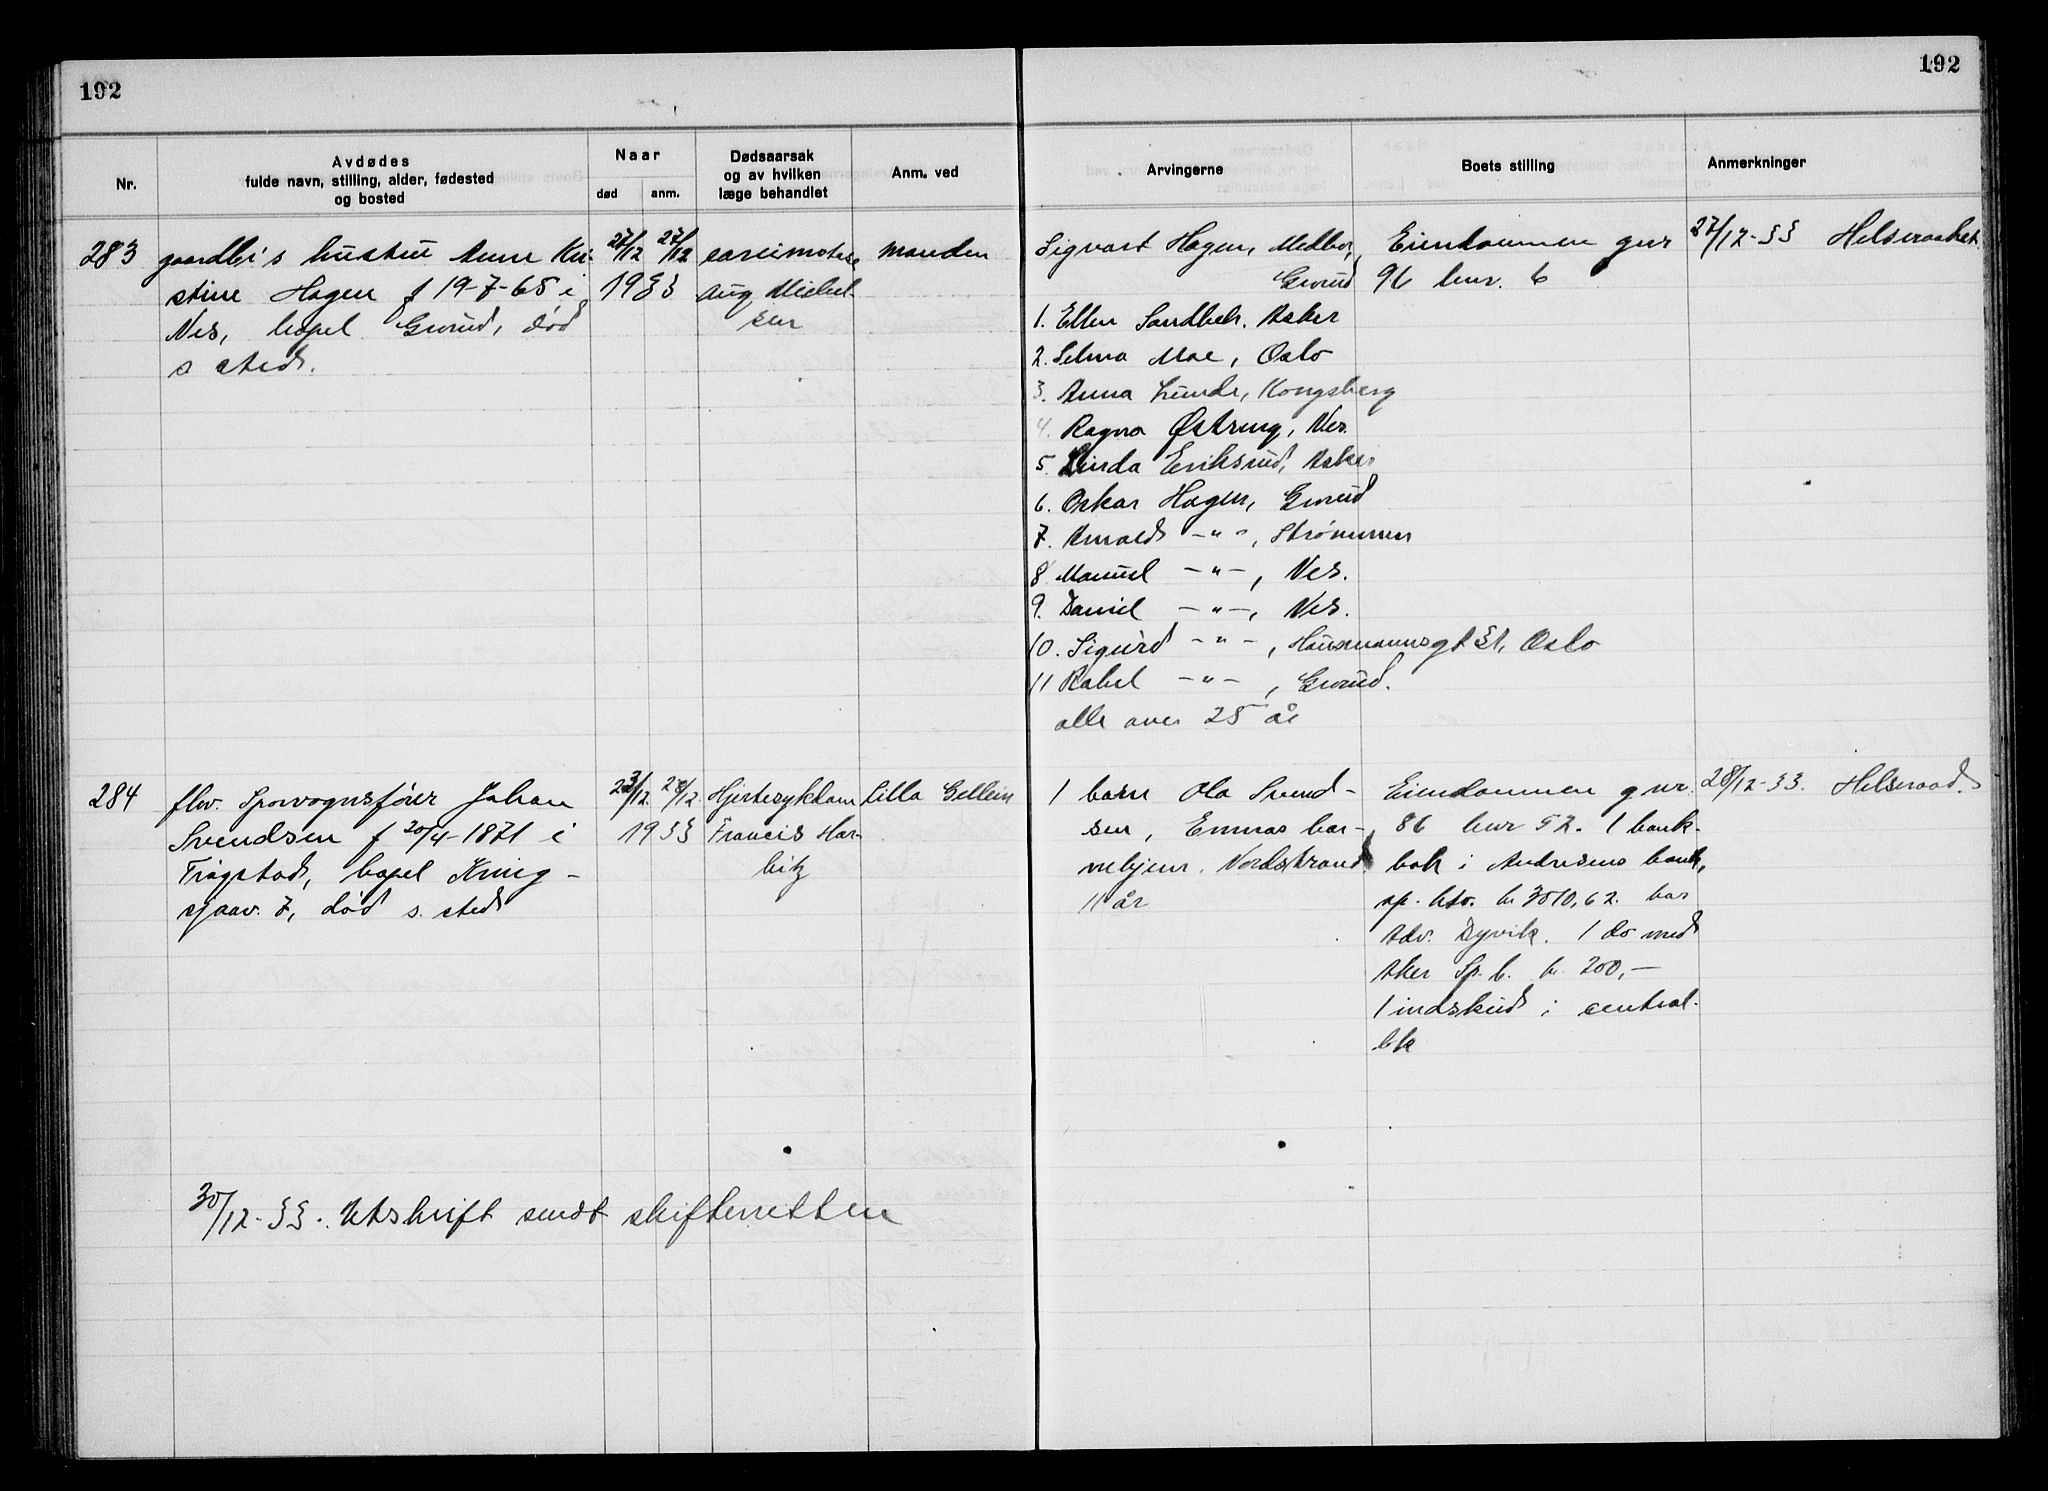 192
192
Nr.
Avdødes
fulde navn, stilling, alder, fødested
og bosted
Naar
død
anm.
Dødsaarsak
og av hvilken
læge behandlet
Anm. ved
Arvingerne
Boets stilling
Anmerkninger
283
gaardbr's hustru Anne Kri-
stine Hagen f 19-7-65 i
Nes, bopel Grorud, død
s sted.
27/12 27/12
1933
Aug. Michel-
sen
manden
Sigvart Hagen, Medbor,
Grorud
1. Ellen Sandbek. Asker
2. Selma Moe, Oslo
3. Anna Lunde, Kongsberg
4. Ragna Østreng, Nes.
5. Linda Eriksrud, Asker
6. Oskar Hagen, Grorud
7. Arnold -"-, Strømmen
8 Manuel -"-, Nes.
9. Daniel -"-, Nes.
10. Sigurd -"-, Hausmannsgt 31, Oslo
11 Rakel -"-, Grorud.
alle over 25 år
Eiendommen gnr
96 bnr. 6
27/12-33 Helseraadet
284
fhv. Sporvognsfører Johan
Svendsen f 20/4-1871 i
Trøgstad, bopel Kring-
sjaav. 7, død s. sted
23/12 28/12
1933
Hjertesykdom
Francis Har-
bitz
Lilla Gellein
1 barn Ola Svend-
sen, Emmas bar-
nehjem. Nordstrand
11 år
Eiendommen gnr.
86 bnr 52. 1 bank-
bok i Andresens bank,
sp. htv. kr 3010,62. har
Adv. Dyvik. 1 do med
Aker Sp. b. kr. 200,-
1 indskud i central-
bk
28/12-33. Helseraad.
30/12-33. Utskrift sendt skifteretten